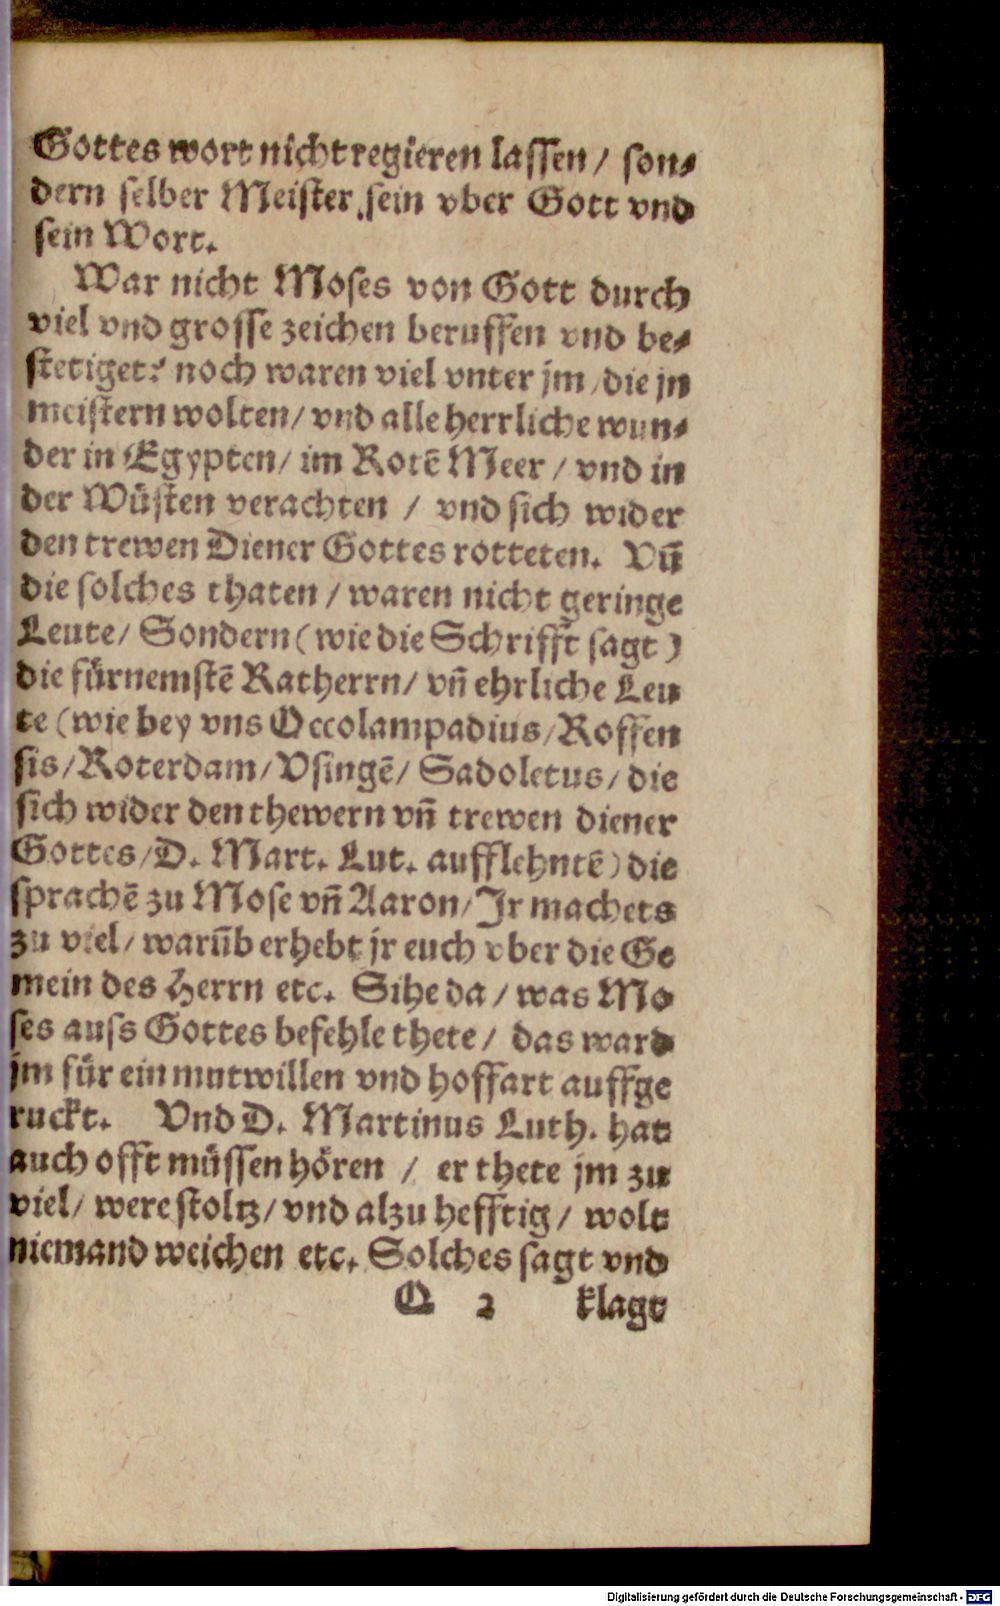 Gottes wort nicht regieren lassen / son⸗
dern selber Meister sein vber Gott vnd
sein Wort.
War nicht Moses von Gott durch
viel vnd grosse zeichen beruffen vnd be⸗
stetiget? noch waren viel vnter jm / die jn
meistern wolten / vnd alle herrliche wun⸗
der in Egypten / im Rotē Meer / vnd in
der Wüsten verachten / vnd sich wider
den trewen Diener Gottes rotteten. Vñ
die solches thaten / waren nicht geringe
Leute / Sondern (wie die Schrifft sagt)
die fürnemstē Ratherrn / vñ ehrliche Leu
te (wie bey vns Occolampadius / Roffen
sis / Roterdam / Vsingē / Sadoletus / die
sich wider den thewern vñ trewen diener
Gottes / D. Mart. Lut. aufflehntē) die
sprachē zu Mose vñ Aaron / Jr machets
zu viel / warūb erhebt jr euch vber die Ge
mein des Herrn etc. Sihe da / was Mo
ses auss Gottes befehle thete / das ward
jm für ein mutwillen vnd hoffart auffge
ruckt. Vnd D. Martinus Luth. hat
auch offt müssen hören / er thete jm zu
viel / were stoltz / vnd alzu hefftig / wolt
niemand weichen etc. Solches sagt vnd
Q 2 klagt
Digitalisierung gefördert durch die Deutsche Forschungsgemeinschaft - DFG